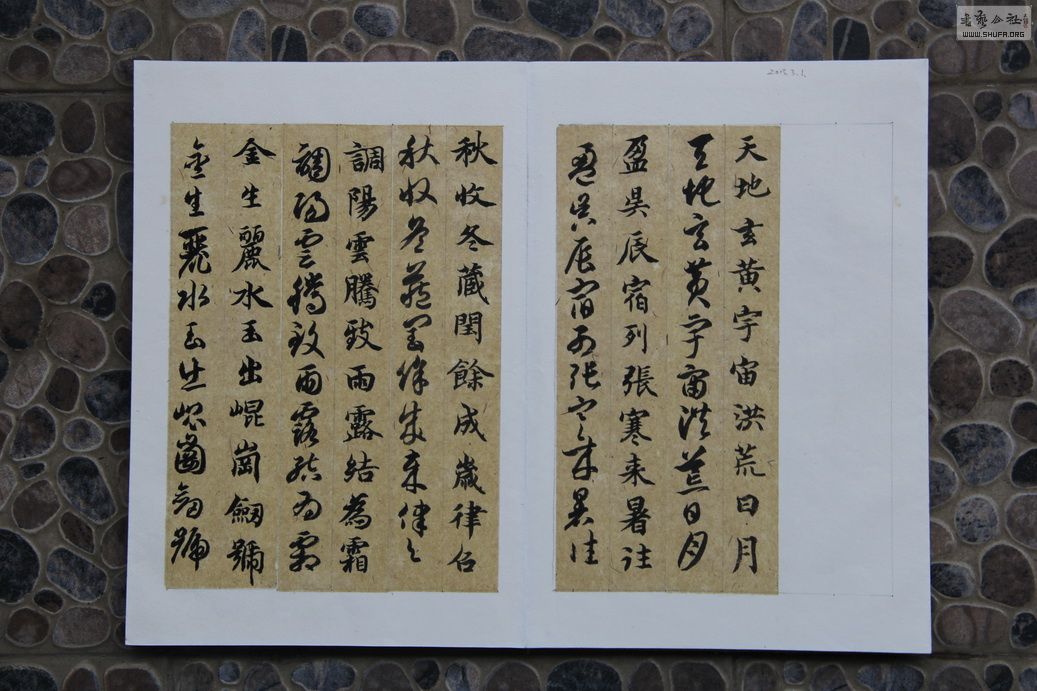 天地玄黃宇宙洪荒日月
天地玄黃宇宙洪荒日月
盈昃辰宿列張寒来暑往
盈昃辰宿列張寒来暑往
秋收冬藏閏餘成歲律召
秋收冬藏閏餘成歲律召
調陽雲騰致雨露結為霜
調陽雲騰致雨露結為霜
金生麗水玉出崐崗劒號
金生麗水玉出崐崗劒號
2015.3.1.
WWW.SHUFA.ORG